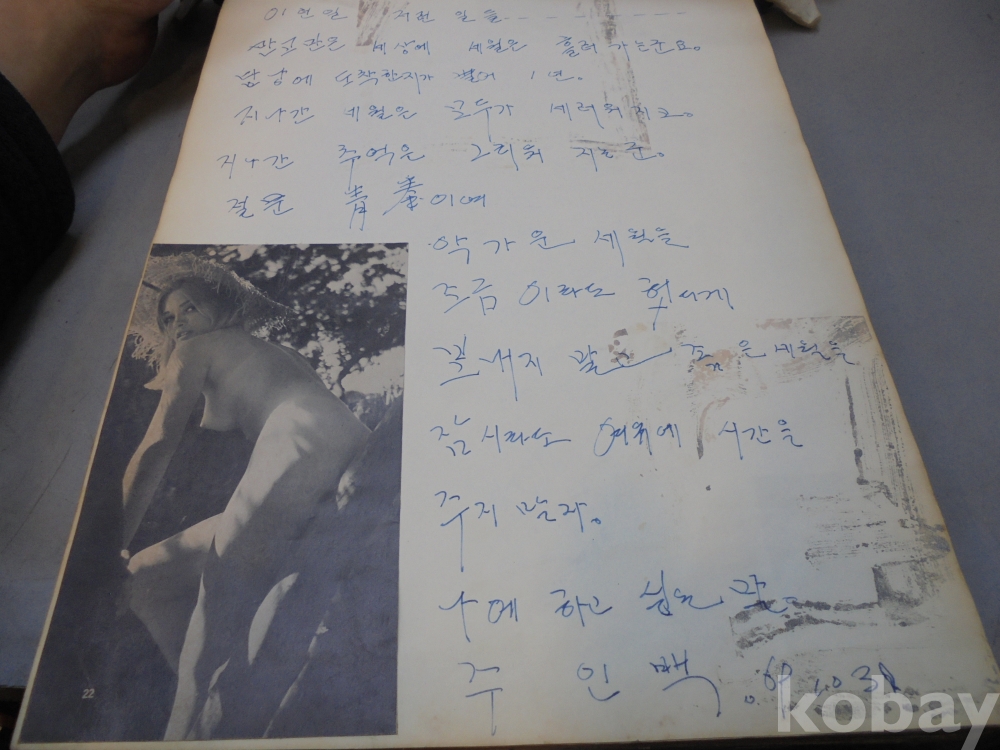 이런일 저런 일들
많고많은 세상에 세월은 흘러 가는군요。
월남에 도착한지가 벌서 1년。
지나간 세월은 모두가 그리워지고。
지나간 추억은 그리워 지는군。
젊은 靑春이여
약가운 세월을
조금이라도 헛되게
보내지 말고 젊은 세월을
잠시라도 여유에 시간을
주지 말라。
나에 하고 싶은 말
주 인 백
22
kobay